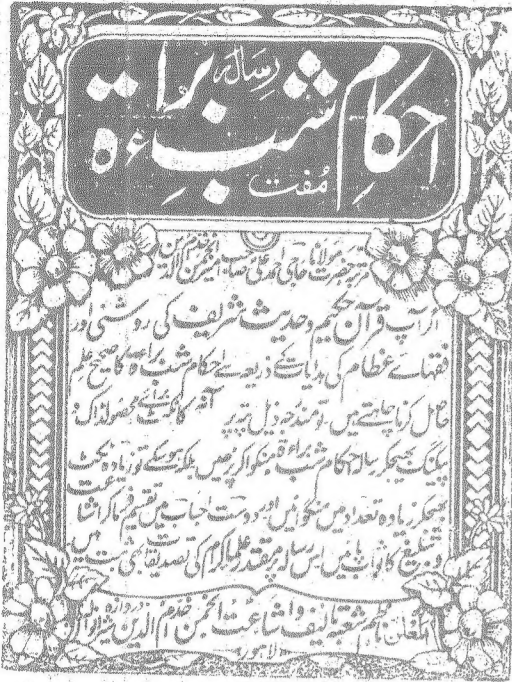 رسالہ
احکامِ شبِ براءۃ
مفت
مرتبہ حضرت مولانا حاجی احمد علی صاحب امیر انجمن خدام الدین لاہور
اگر آپ قرآن حکیم و حدیث شریف کی روشنی اور
فقہائے عظام کی ہدایات کے ذریعہ سے احکام شب براءۃ کا صحیح علم
حاصل کرنا چاہتے ہیں، تو مندرجہ ذیل پتہ پر آنہ کا ٹکٹ برائے محصولڈاک
پیکٹ بھیجکر رسالہ احکام شب براءۃ مفت منگوا کر پڑھیں بلکہ ہو سکے تو زیادہ ٹکٹ
بھیجکر زیادہ تعداد میں منگوائیں اور دوست احباب میں تقسیم فرما کر اشاعت
و تبلیغ کا ثواب لیں اس رسالہ پر مقتدر علماء کرام کی تصدیقات بھی ثبت ہیں
المعلن ناظم شعبۂ تالیف و اشاعت انجمن خدام الدین دروازہ شیرانوالہ
لاہور